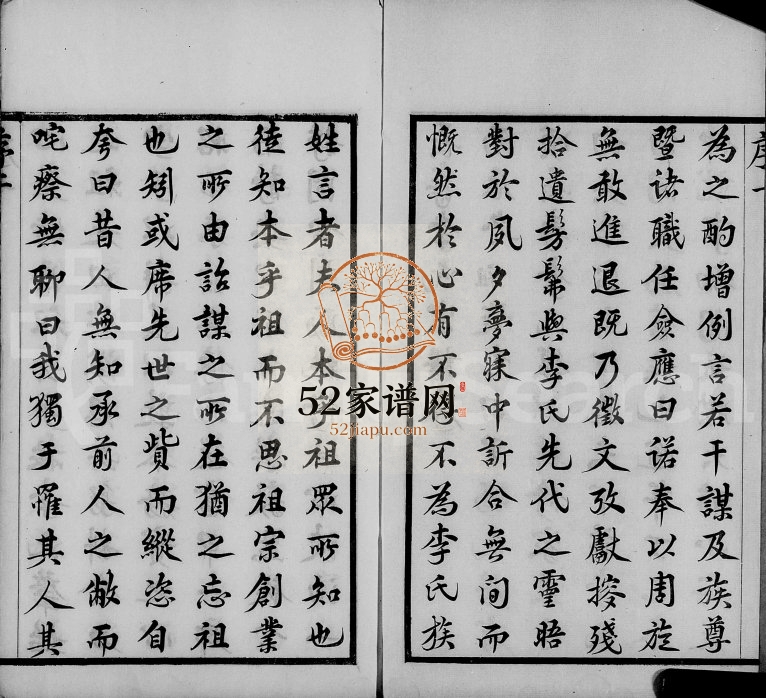 序一
為之酌增例言若干謀及族尊
暨諸職任僉應曰諾奉以周旋
無敢進退既乃徵文攷獻摉殘
拾遺髣髴與李氏先代之靈晤
對於夙夕夢寐中訢合無间而
慨然於心有不得不為李氏族
姓言者夫人本乎祖眾所知也
徒知本乎祖而不思祖宗創業
之所由詒謀之所在猶之忘祖
也矧或席先世之貲而縱恣自
夸曰昔人無知承前人之敝而
咤瘵無聊曰我獨于罹其人其
序二
52家谱网
52jiapu.com